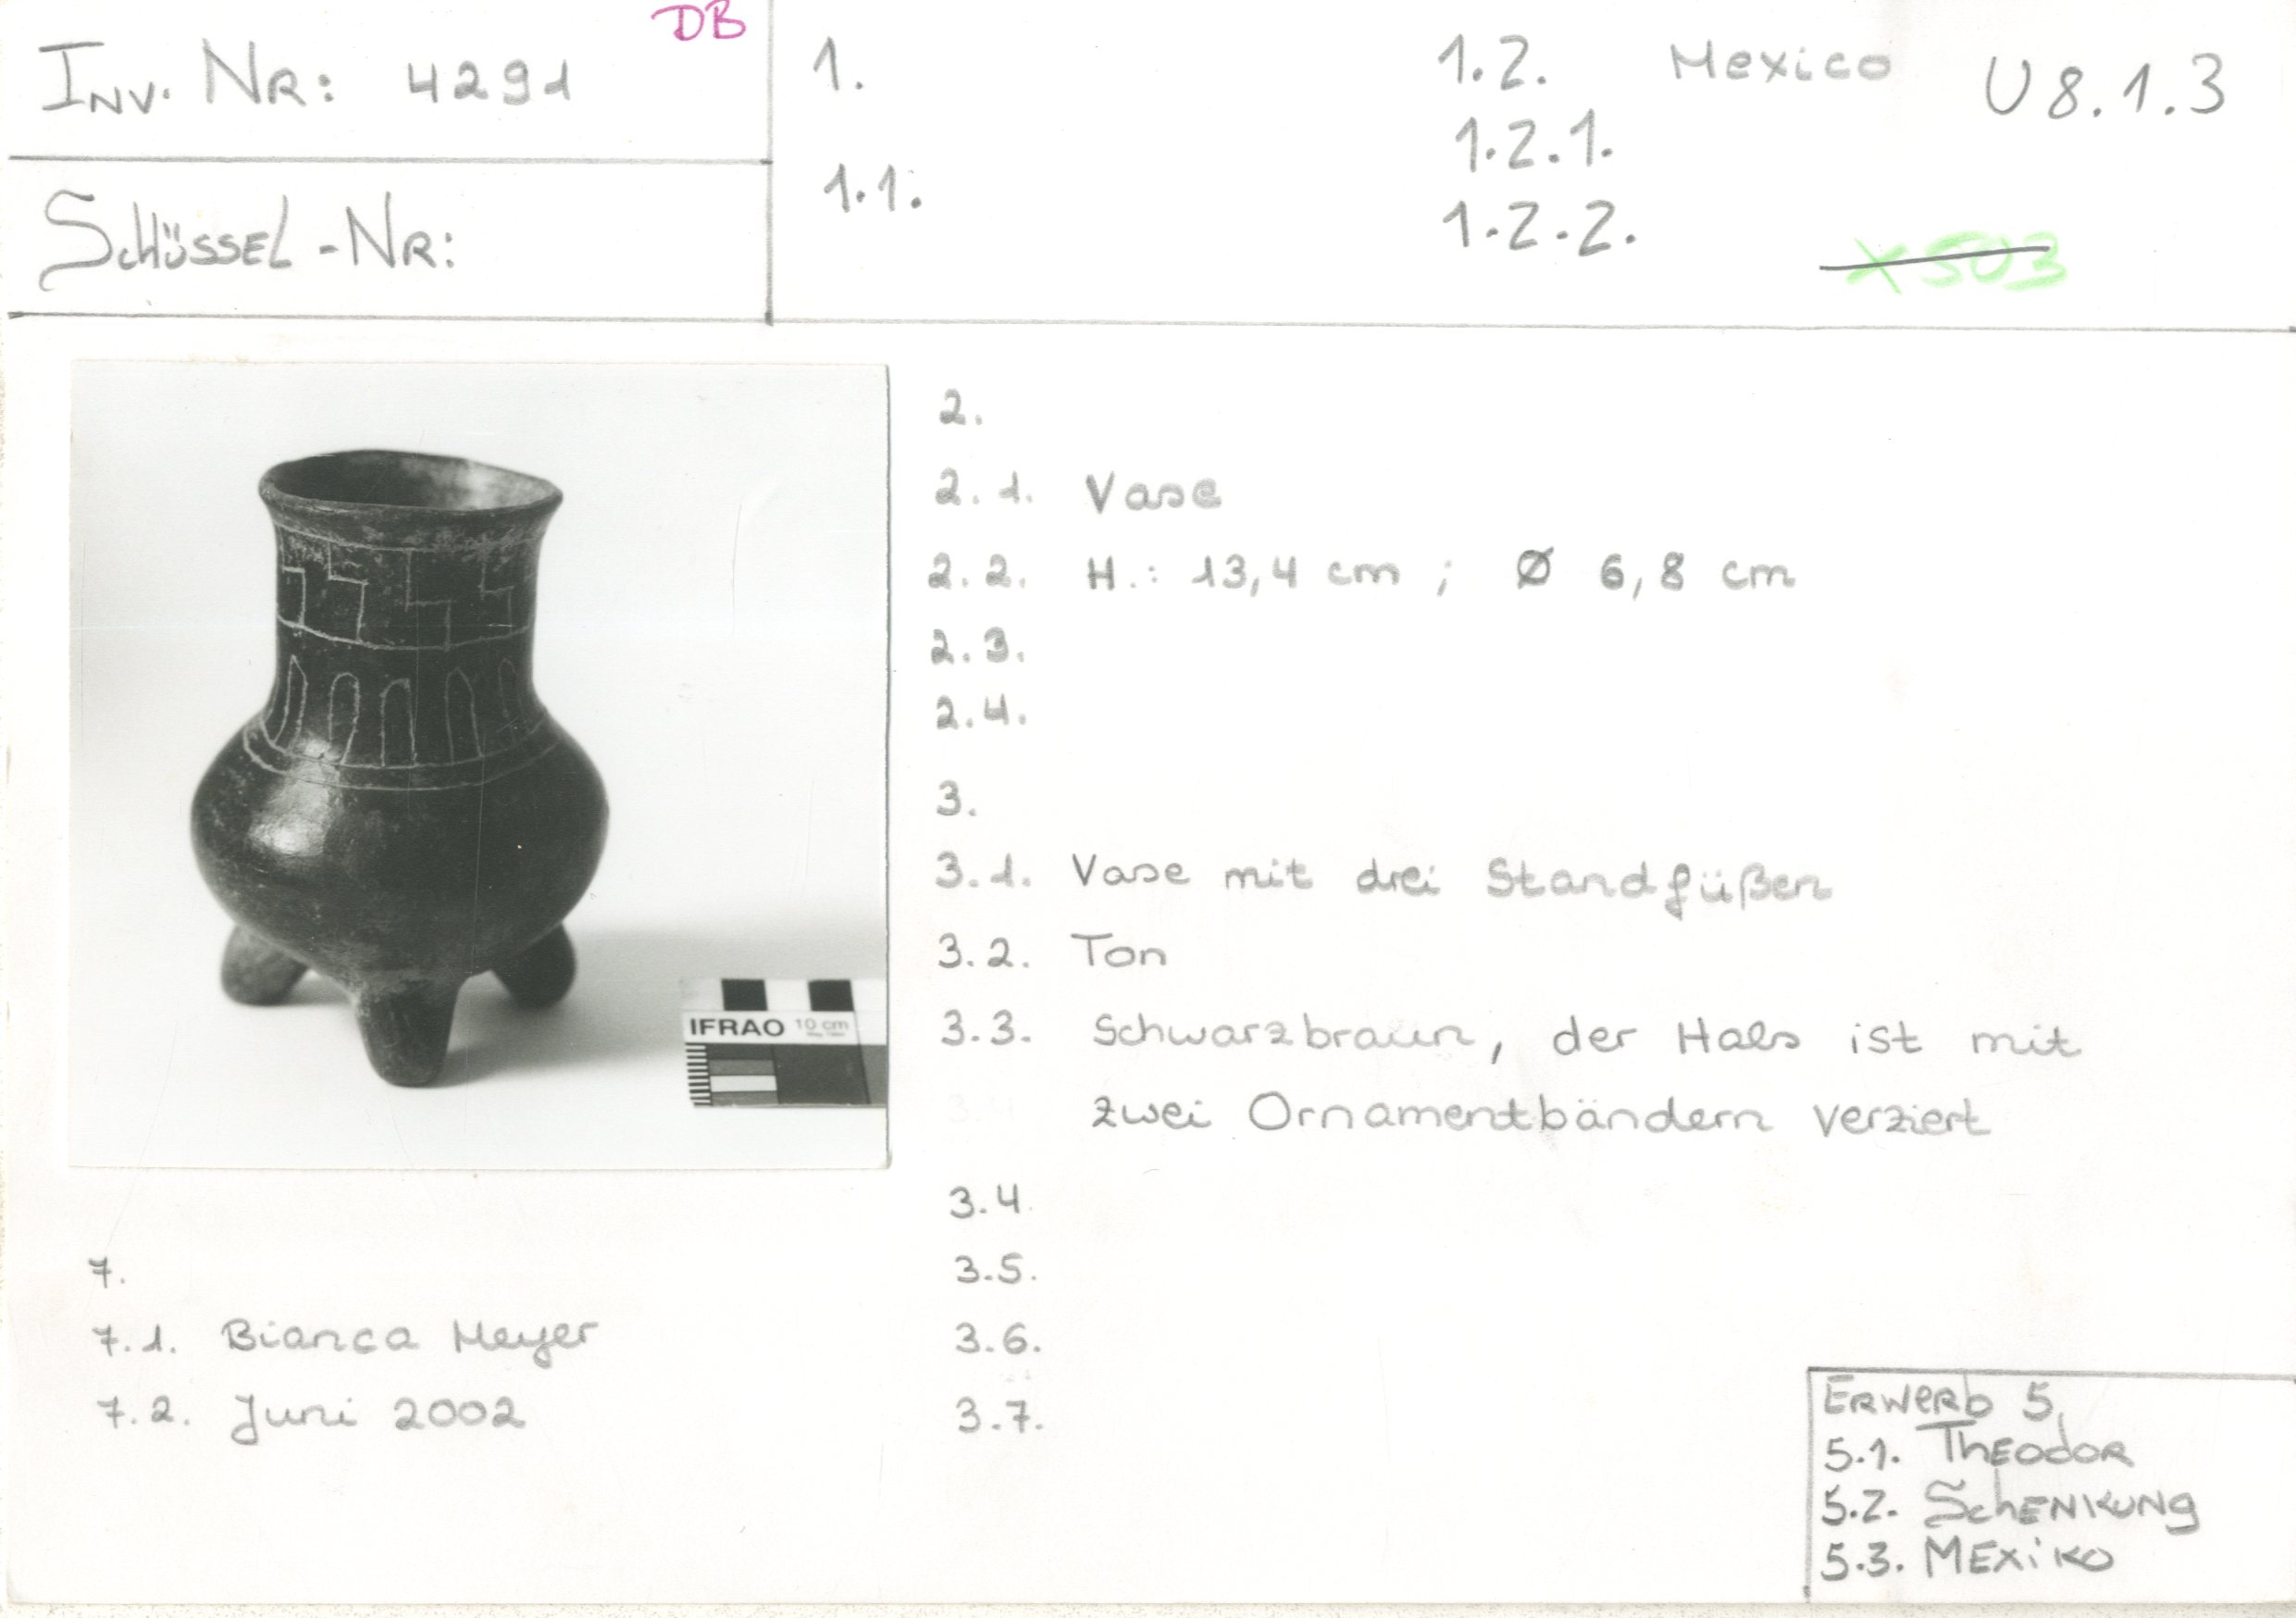 DB
INV. NR: 4291
SCHLÜSSEL-NR:
1.
1.1.
1.2. Mexico
1.2.1.
1.2.2.
U 8.1.3
X 503
2.
2.1. Vase
2.2. H.: 13,4 cm ; Ø 6,8 cm
2.3.
2.4.
3.
3.1. Vase mit drei Standfüßen
3.2. Ton
3.3. Schwarzbraun, der Hals ist mit
zwei Ornamentbändern verziert
3.4.
3.5.
3.6.
3.7.
IFRAO 10 cm
7.
7.1. Bianca Meyer
7.2. Juni 2002
ERWERB 5.
5.1. THEODOR
5.2. SCHENKUNG
5.3. MEXIKO